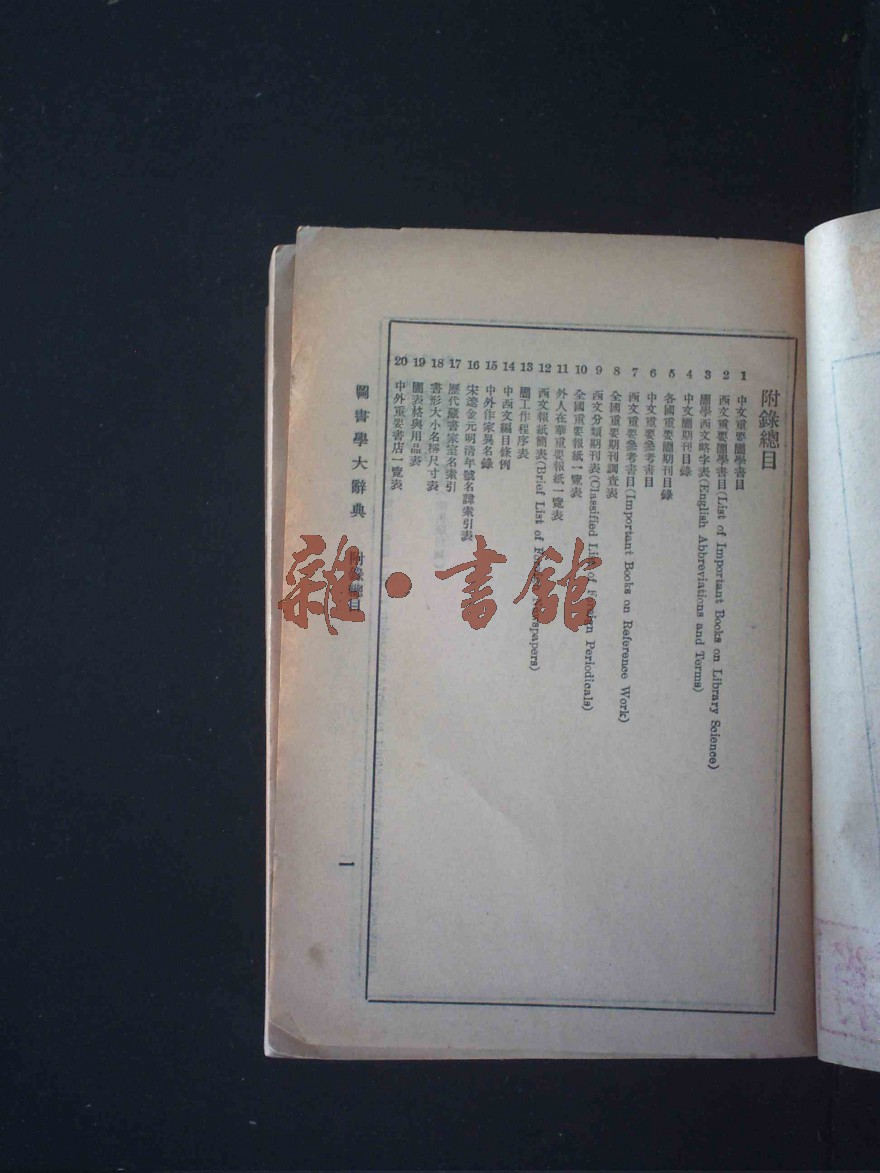 附錄總目
1 中文重要圕學書目
2 西文重要圕學書目(List of Important Books on Library Science)
3 圕學西文略字表(English Abbreviations and Terms)
4 中文圕期刊目錄
5 各國重要圕期刊目錄
6 中文重要參考書目
7 西文重要參考書目(Important Books on Reference Work)
8 全國重要期刊調查表
9 西文分類期刊表(Classified List of Foreign Periodicals)
10 全國重要報紙一覽表
11 外人在華重要報紙一覽表
12 西文報紙簡表(Brief List of Foreign Newspapers)
13 圕工作程序表
14 中西文編目條例
15 中外作家異名錄
16 宋遼金元明清年號名諱索引表
17 歷代藏書家室名索引
18 書形大小名稱尺寸表
19 圕表格與用品表
20 中外重要書店一覽表
圖書學大辭典 附錄總目
一
雜·書館